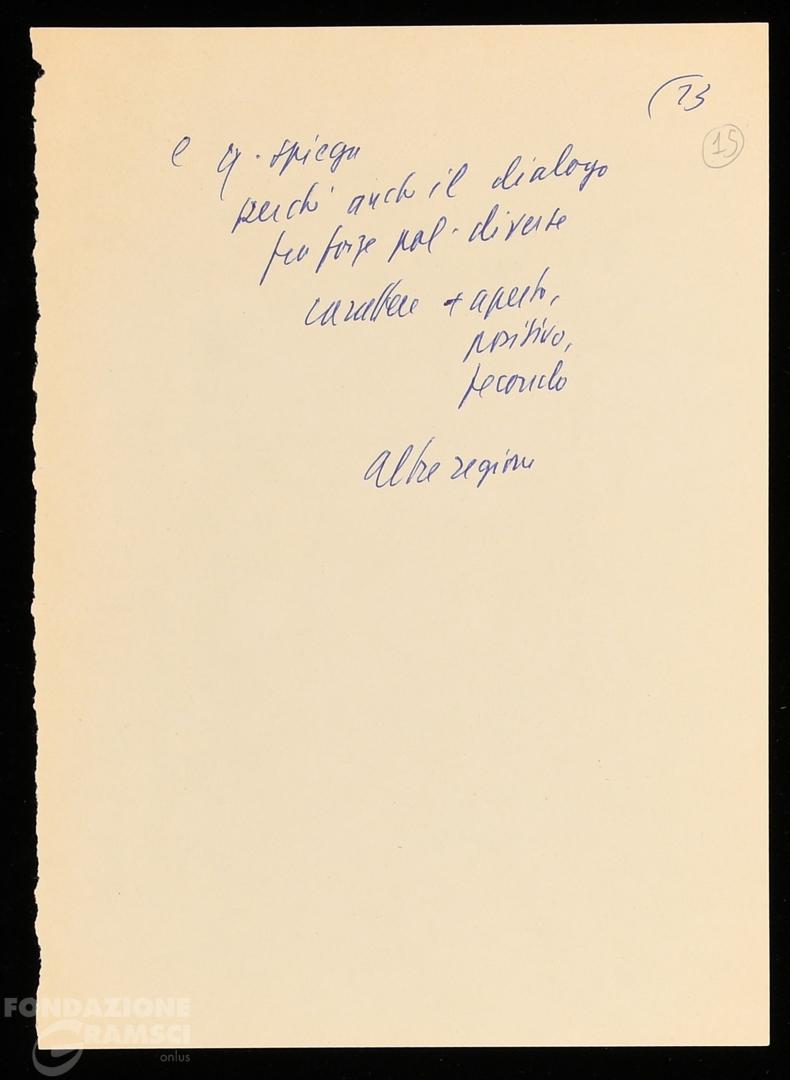 13
15
e q. spiega
perché anche il dialogo
fra forze pol. diverse
carattere + aperto,
positivo,
fecondo
altre regioni
FONDAZIONE
GRAMSCI
onlus